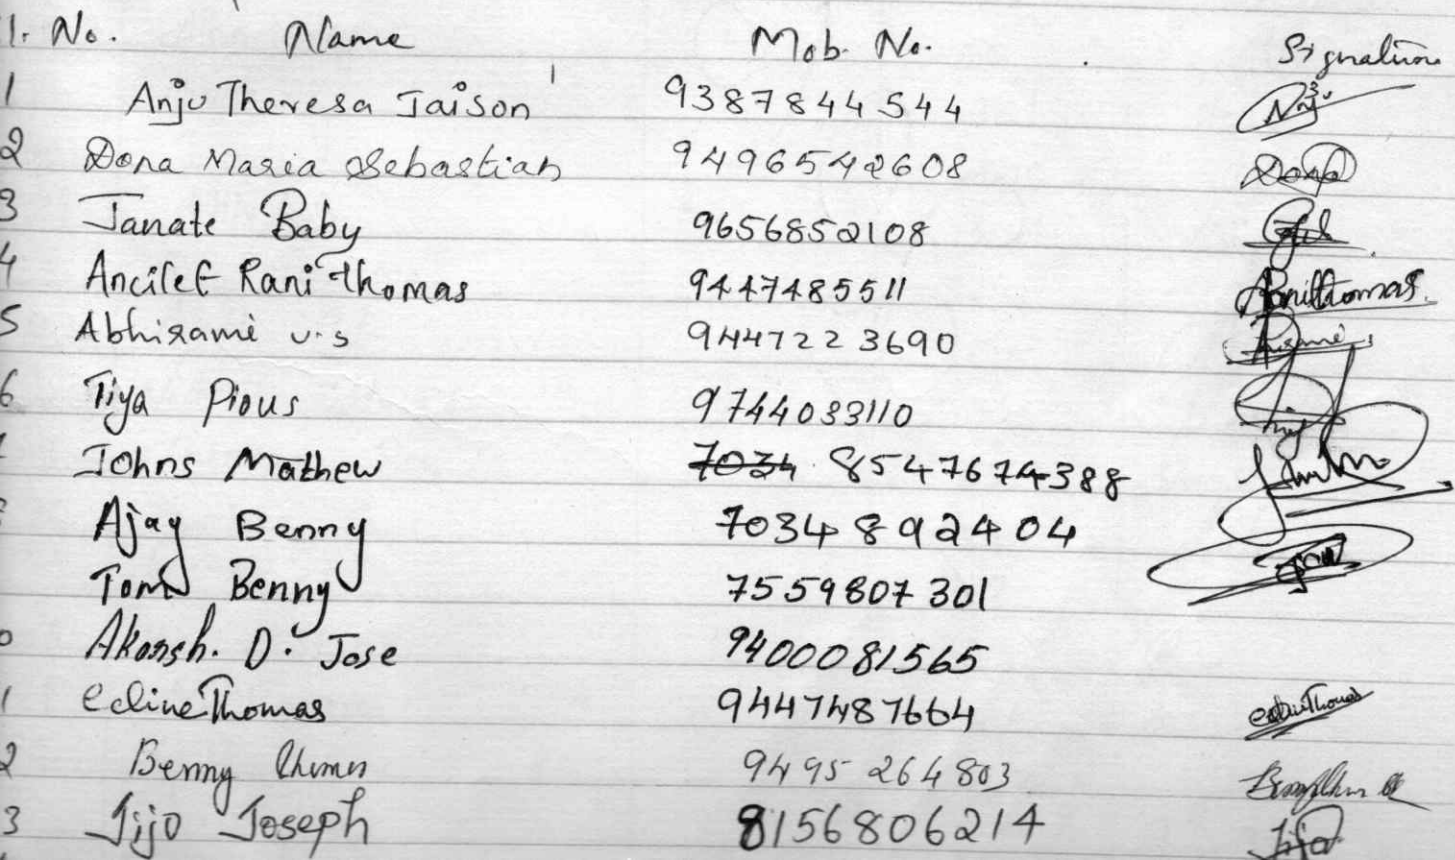 1. No. Name Mob. No. Signature
1 Anju Theresa Jaison 9387844544
2 Dona Maria Sebastian 9496542608 Dona
3 Janate Baby 9656852108
4 Ancilet Rani Thomas 9447485511
5 Abhirami v.s 9447223690
6 Tiya Pious 9744033110
Johns Mathew 7034 8547674388
Ajay Benny 7034892404
Tom Benny 7559807301
0 Akansh. D. Jose 9400081565
1 ecline Thomas 9447487664
2 Benny 9495264803
3 Jijo Joseph 8156806214 Jijo